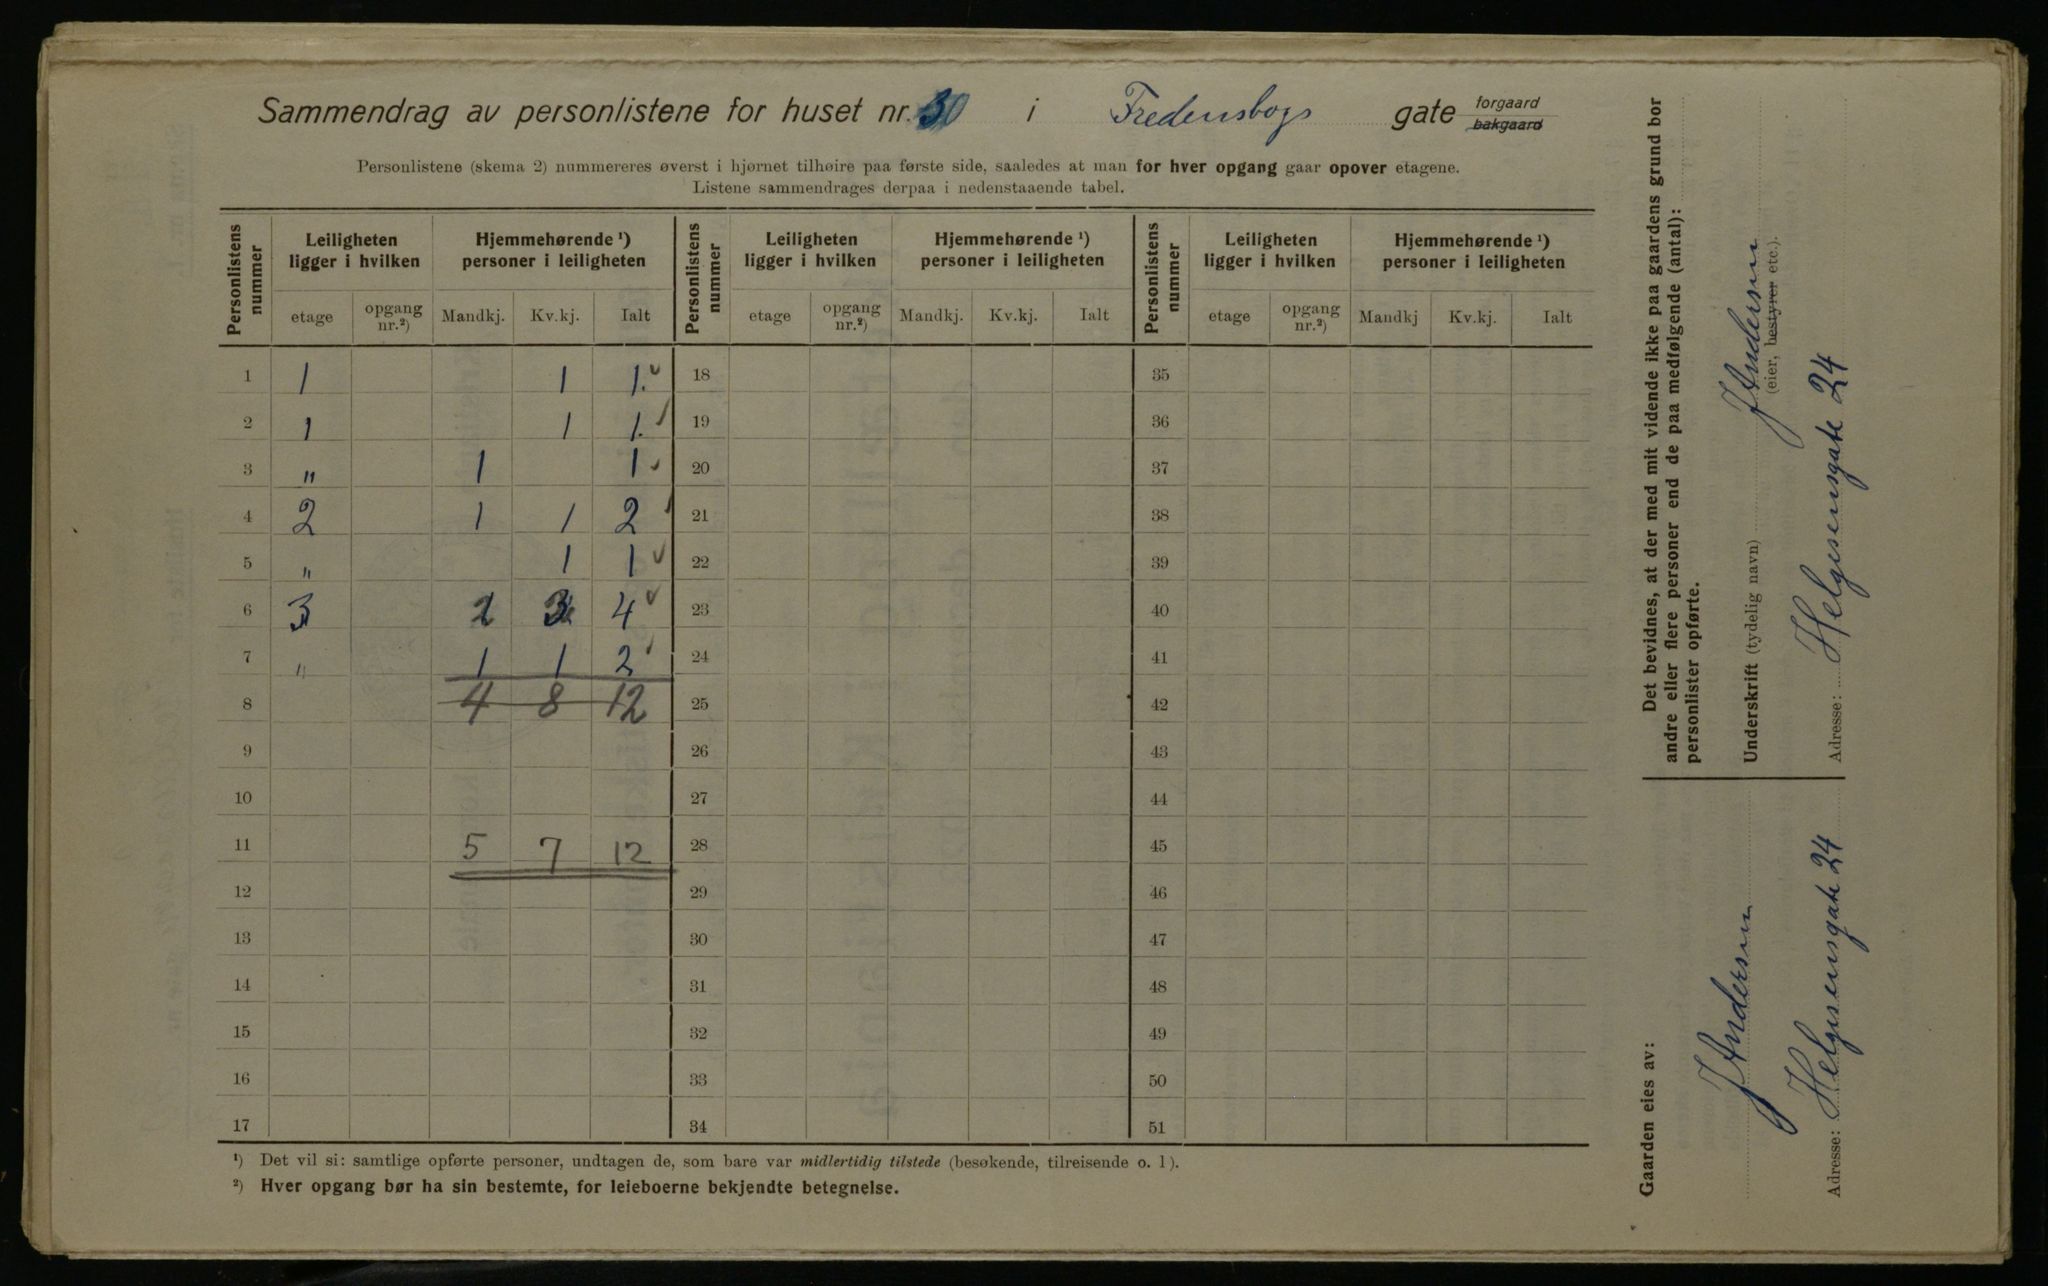 Sammendrag av personlistene for huset nr. 30 i Fredensbogs gate forgaard bakgaard
Personlistene (skema 2) nummereres øverst i hjørnet tilhøire paa første side, saaledes at man for hver opgang gaar opover etagene.
Listene sammendrages derpaa i nedenstaaende tabel.
Personlistens nummer | Leiligheten ligger i hvilken | Hjemmehørende ¹) personer i leiligheten | Personlistens nummer | Leiligheten ligger i hvilken | Hjemmehørende ¹) personer i leiligheten | Personlistens nummer | Leiligheten ligger i hvilken | Hjemmehørende ¹) personer i leiligheten
etage | opgang nr.²) | Mandkj. | Kv.kj. | Ialt | etage | opgang nr.²) | Mandkj. | Kv.kj. | Ialt | etage | opgang nr.²) | Mandkj | Kv.kj. | Ialt
1 | 1 | | | 1 | 1. | 18 | 35
2 | 1 | | | 1 | 1. | 19 | 36
3 | " | | 1 | | 1 | 20 | 37
4 | 2 | | 1 | 1 | 2 | 21 | 38
5 | " | | | 1 | 1 | 22 | 39
6 | 3 | | | 3 | 4 | 23 | 40
7 | " | | 1 | 1 | 2 | 24 | 41
8 | | | 4 | 8 | 12 | 25 | 42
9 | 26 | 43
10 | 27 | 44
11 | | | 5 | 7 | 12 | 28 | 45
12 | 29 | 46
13 | 30 | 47
14 | 31 | 48
15 | 32 | 49
16 | 33 | 50
17 | 34 | 51
¹) Det vil si: samtlige opførte personer, undtagen de, som bare var midlertidig tilstede (besøkende, tilreisende o. l).
²) Hver opgang bør ha sin bestemte, for leieboerne bekjendte betegnelse.
Det bevidnes, at der med mit vidende ikke paa gaardens grund bor
andre eller flere personer end de paa medfølgende (antal):
personlister opførte.
Underskrift (tydelig navn) J Andersen
(eier, bestyrer etc.).
Adresse: Helgesensgate 24
Gaarden eies av:
J Andersen
Adresse: Helgesensgate 24